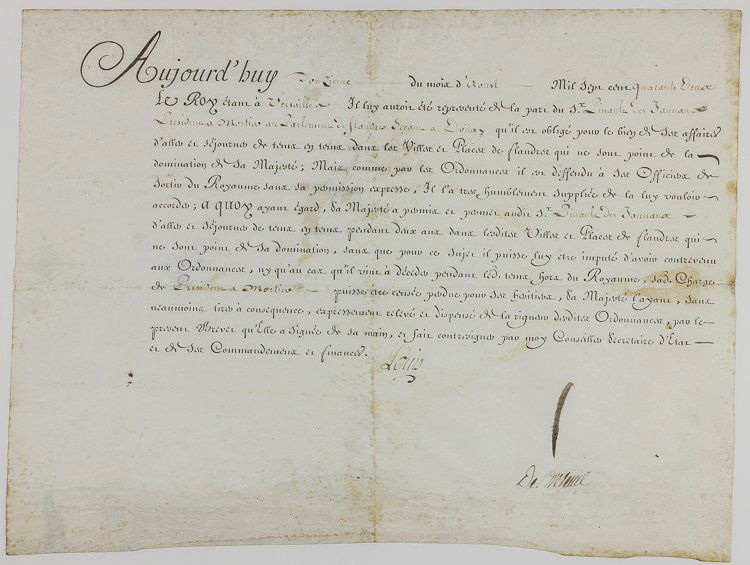 Aujourd'huy Douzieme du mois d'Aoust Mil sept cent quarante Deux
Le Roy étant à Versailles Il luy auroit été representé de la part du Sr. Pinault des Jaunaux
President a Mortier au Parlement de flandres séant a Doüay qu'il est obligé pour le bien de ses affaires
d'aller et séjourner de tems en tems, dans les Villes et Places de flandres qui ne sont point de la
domination de Sa Majesté; Mais comme par les Ordonnances il est deffendu à ses Officiers de
sortir du Royaume sans sa permission expresse, Il l'a tres humblement suppliée de la luy vouloir
accorder; A QUOY ayant égard, Sa Majesté a permis et permet audit Sr. Pinault des Jaunaux
d'aller et séjourner de tems en tems pendant deux ans dans lesdites Villes et Places de flandres qui
ne sont point de sa domination, sans que pour ce sujet il puisse luy être imputé d'avoir contrevenu
aux Ordonnances, ny qu'au cas qu'il vint à décéder pendant led. tems hors du Royaume, sad. Charge
de President a Mortier puisse être censée perdue pour ses heritiers, Sa Majesté l'ayant, sans
neanmoins tirer à consequence, expressement relevé et dispensé de la rigueur desdites Ordonnances, par le
present Brevet qu'Elle a signée de sa main, et fait contresigner par moy Conseiller Secretaire d'Etat
et de ses Commandemens et finances.
Louis